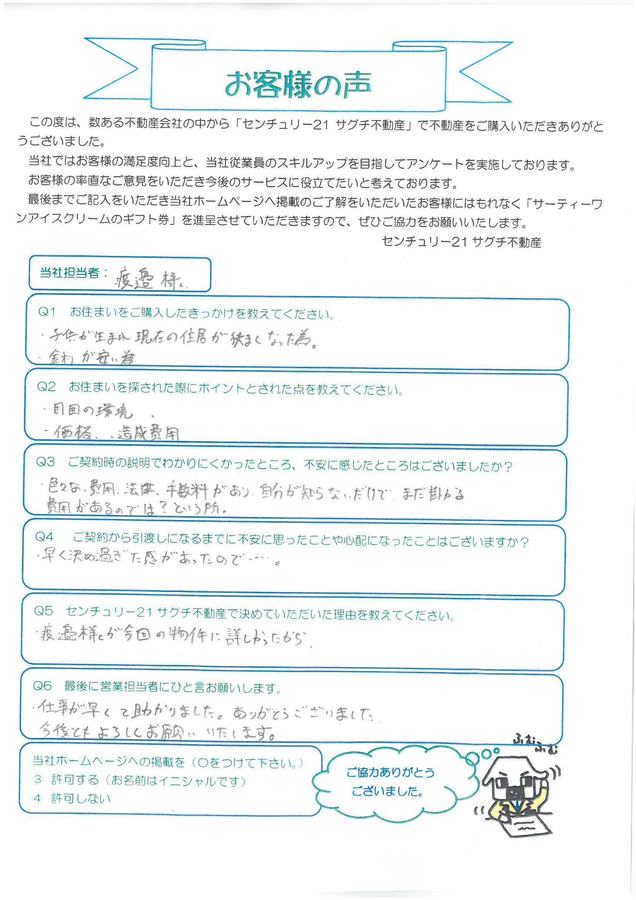 お客様の声
この度は、数ある不動産会社の中から「センチュリー21 サグチ不動産」で不動産をご購入いただきありがと
うございました。
当社ではお客様の満足度向上と、当社従業員のスキルアップを目指してアンケートを実施しております。
お客様の率直なご意見をいただき今後のサービスに役立てたいと考えております。
最後までご記入をいただき当社ホームページへ掲載のご了解をいただいたお客様にはもれなく「サーティーワ
ンアイスクリームのギフト券」を進呈させていただきますので、ぜひご協力をお願いいたします。
センチュリー21 サグチ不動産
当社担当者： 渡邉 様
Q1 お住まいをご購入したきっかけを教えてください。
・子供が生まれ 現在の住居が狭くなった為。
・金利が安い為
Q2 お住まいを探された際にポイントとされた点を教えてください。
・周囲の環境
・価格、造成費用
Q3 ご契約時の説明でわかりにくかったところ、不安に感じたところはございましたか？
・色々な費用、法律、手数料があり、自分が知らないだけで、まだ掛かる
費用があるのでは？という所。
Q4 ご契約から引渡しになるまでに不安に思ったことや心配になったことはございますか？
・早く決め過ぎた感があったので…。
Q5 センチュリー21 サグチ不動産で決めていただいた理由を教えてください。
・渡邉様が今回の物件に詳しかったから
Q6 最後に営業担当者にひと言お願いします。
・仕事が早くて助かりました。ありがとうございました。
今後ともよろしくお願いいたします。
当社ホームページへの掲載を（○をつけて下さい。）
3 許可する（お名前はイニシャルです）
4 許可しない
ご協力ありがとう
ございました。
ふむふむ